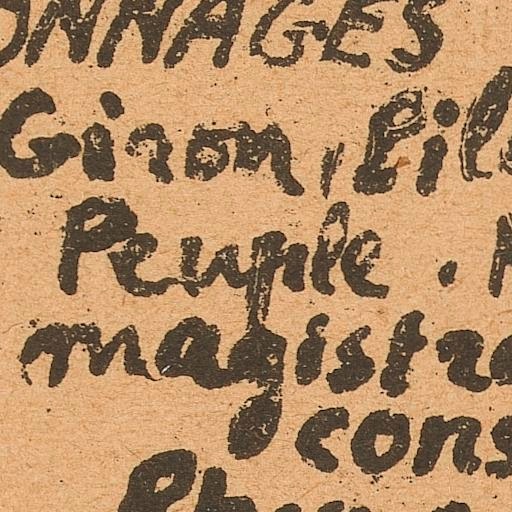 ONNAGES
Giron, Bil
Peuple.
magistra
cons